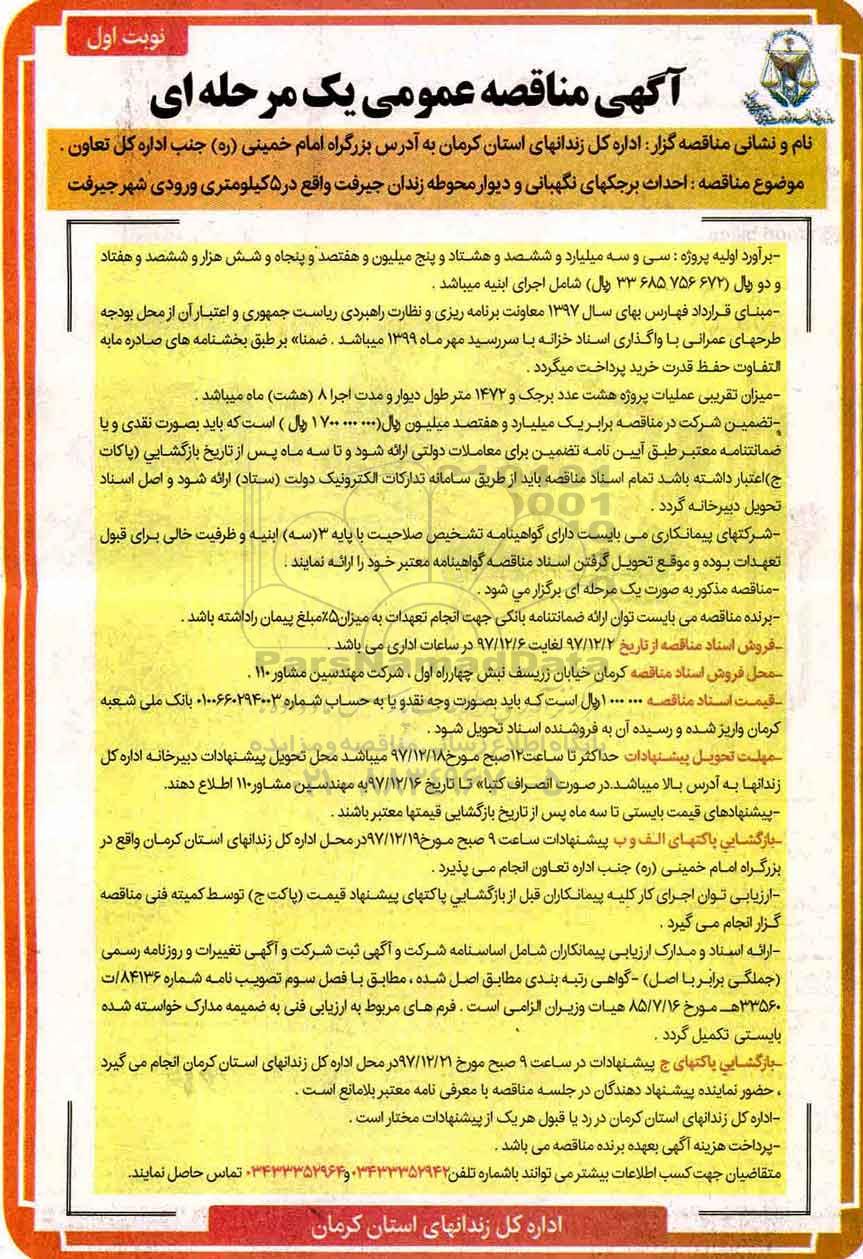 نوبت اول
آگهی مناقصه عمومی یک مرحله ای
نام و نشانی مناقصه گزار : اداره کل زندانهای استان کرمان به آدرس بزرگراه امام خمینی (ره) جنب اداره کل تعاون .
موضوع مناقصه : احداث برجکهای نگهبانی و دیوار محوطه زندان جیرفت واقع در ۵ کیلومتری ورودی شهر جیرفت
-برآورد اولیه پروژه : سی و سه میلیارد و ششصد و هشتاد و پنج میلیون و هفتصد و پنجاه و شش هزار و ششصد و هفتاد
و دو ریال (۶۷۲ ۷۵۶ ۶۸۵ ۳۳ ریال) شامل اجرای ابنیه میباشد .
-مبنای قرارداد فهارس بهای سال ۱۳۹۷ معاونت برنامه ریزی و نظارت راهبردی ریاست جمهوری و اعتبار آن از محل بودجه
طرحهای عمرانی با واگذاری اسناد خزانه با سررسید مهر ماه ۱۳۹۹ میباشد . ضمنا» بر طبق بخشنامه های صادره مابه
التفاوت حفظ قدرت خرید پرداخت میگردد .
-میزان تقریبی عملیات پروژه هشت عدد برجک و ۱۴۷۲ متر طول دیوار و مدت اجرا ۸ (هشت) ماه میباشد .
-تضمین شرکت در مناقصه برابر یک میلیارد و هفتصد میلیون ریال(۰۰۰ ۰۰۰ ۷۰۰ ۱ ریال ) است که باید بصورت نقدی و یا
ضمانتنامه معتبر طبق آیین نامه تضمین برای معاملات دولتی ارائه شود و تا سه ماه پس از تاریخ بازگشایي (پاکات
ج)اعتبار داشته باشد تمام اسناد مناقصه باید از طریق سامانه تدارکات الکترونیک دولت (ستاد) ارائه شود و اصل اسناد
تحویل دبیرخانه گردد .
-شرکتهای پیمانکاری می بایست دارای گواهینامه تشخیص صلاحیت با پایه ۳(سه) ابنیه و ظرفیت خالی برای قبول
تعهدات بوده و موقع تحویل گرفتن اسناد مناقصه گواهینامه معتبر خود را ارائه نمایند .
-مناقصه مذکور به صورت یک مرحله ای برگزار مي شود .
-برنده مناقصه می بایست توان ارائه ضمانتنامه بانکی جهت انجام تعهدات به میزان۵٪مبلغ پیمان راداشته باشد .
-فروش اسناد مناقصه از تاریخ ۹۷/۱۲/۲ لغایت ۹۷/۱۲/۶ در ساعات اداری می باشد .
-محل فروش اسناد مناقصه کرمان خیابان زریسف نبش چهارراه اول ، شرکت مهندسین مشاور ۱۱۰ .
-قیمت اسناد مناقصه ۰۰۰ ۰۰۰ ۱ریال است که باید بصورت وجه نقدو یا به حساب شماره ۰۱۰۰۶۶۰۲۹۴۰۰۳ بانک ملی شعبه
کرمان واریز شده و رسیده آن به فروشنده اسناد تحویل شود .
-مهلت تحویل پیشنهادات حداکثر تا ساعت۱۲صبح مورخ۹۷/۱۲/۱۸ میباشد محل تحویل پیشنهادات دبیرخانه اداره کل
زندانها به آدرس بالا میباشد.در صورت انصراف کتبا» تا تاریخ ۹۷/۱۲/۱۶به مهندسین مشاور۱۱۰ اطلاع دهند.
-پیشنهادهای قیمت بایستی تا سه ماه پس از تاریخ بازگشایی قیمتها معتبر باشند .
-بازگشایي پاکتهای الف و ب پیشنهادات ساعت ۹ صبح مورخ۹۷/۱۲/۱۹در محل اداره کل زندانهای استان کرمان واقع در
بزرگراه امام خمینی (ره) جنب اداره تعاون انجام می پذیرد .
-ارزیابی توان اجرای کار کلیه پیمانکاران قبل از بازگشایي پاکتهای پیشنهاد قیمت (پاکت ج) توسط کمیته فنی مناقصه
گزار انجام می گیرد .
-ارائه اسناد و مدارک ارزیابی پیمانکاران شامل اساسنامه شرکت و آگهی ثبت شرکت و آگهی تغییرات و روزنامه رسمی
(جملگی برابر با اصل) -گواهی رتبه بندی مطابق اصل شده ، مطابق با فصل سوم تصویب نامه شماره ۸۴۱۳۶/ت
۳۳۵۶۰هـ مورخ ۸۵/۷/۱۶ هیات وزیران الزامی است . فرم های مربوط به ارزیابی فنی به ضمیمه مدارک خواسته شده
بایستی تکمیل گردد .
-بازگشایي پاکتهای ج پیشنهادات در ساعت ۹ صبح مورخ ۹۷/۱۲/۲۱در محل اداره کل زندانهای استان کرمان انجام می گیرد
، حضور نماینده پیشنهاد دهندگان در جلسه مناقصه با معرفی نامه معتبر بلامانع است .
-اداره کل زندانهای استان کرمان در رد یا قبول هر یک از پیشنهادات مختار است .
-پرداخت هزینه آگهی بعهده برنده مناقصه می باشد .
متقاضیان جهت کسب اطلاعات بیشتر می توانند باشماره تلفن۰۳۴۳۳۳۵۲۹۴۲ و۰۳۴۳۳۳۵۲۹۶۴ تماس حاصل نمایند.
اداره کل زندانهای استان کرمان
ParsNamadData